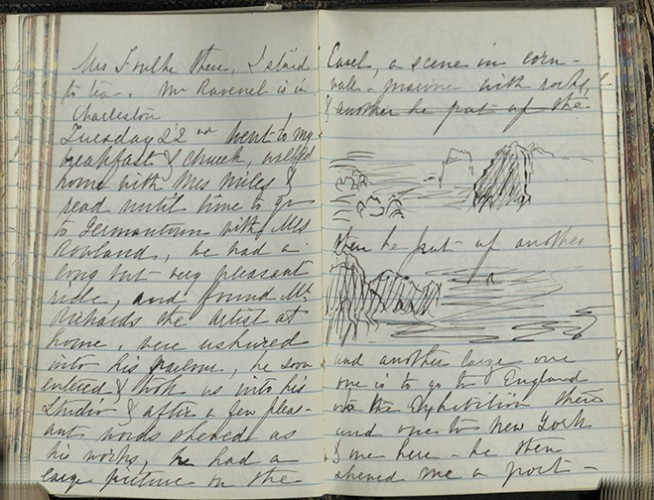 Mrs Foulke there, I staid
to tea. Mr Ravenel is in
Charleston
Tuesday 22nd went to my
breakfast & church, walked
home with Mrs Miles &
read until time to go
to Germantown with Mrs
Rowland, he had a
long but very pleasant
ride, and found Mr
Richards the artist at
home, were ushered
into his parlour, he soon
entered & took us into his
Studio & after a few pleas-
ant words showed us
his works, he had a
large picture on the
Easel, a scene in corn-
wall - marine with rocks,
& another he put up the
then he put up another
and another large one
one is to go to England
to the Exhibition there
and one to New York
& one here - he then
showed me a port-